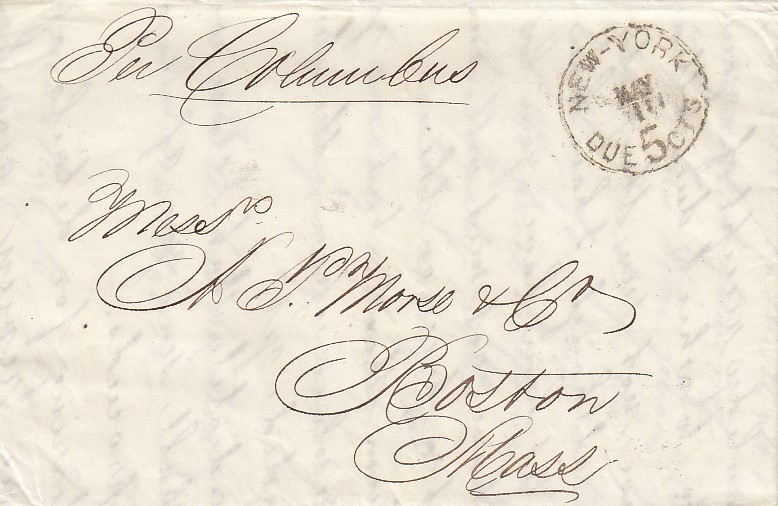 Per Columbus
NEW-YORK
MAY
DUE 5 CTS
Messrs
Morse & Co
Boston
Mass